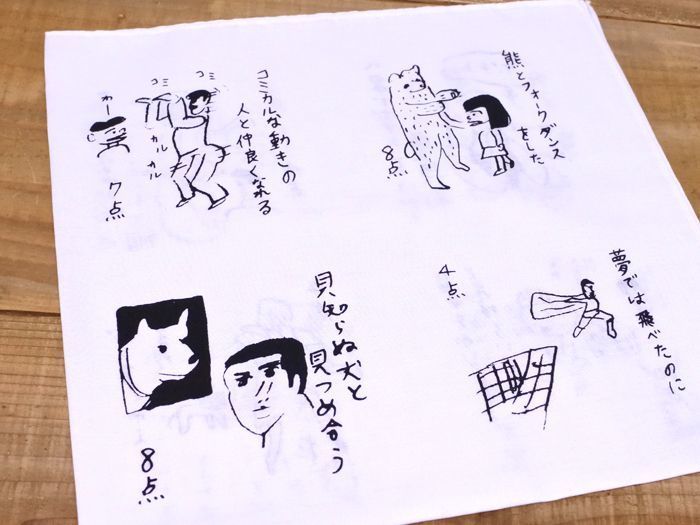 コミカルな動きの
人と仲良くなれる
コミ
コミ
カル
カル
わー
7点
熊とフォークダンス
をした
8点
見知らぬ犬と
見つめ合う
8点
夢では飛べたのに
4点